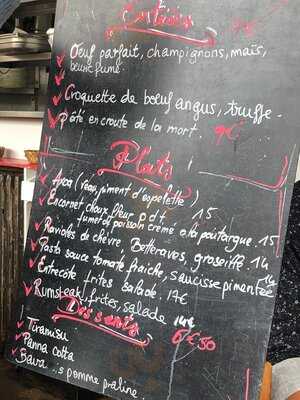 Entrées 7€
Oeuf parfait, champignons, maïs,
beurre fumé.
Croquette de boeuf angus, truffe.
Pâté en croute de la mort. 9€
Plats
Axoa (veau, piment d'espelette) 15
Encornet choux fleur, p.d.t,
fumet de poisson crème à la poutargue. 15
Ravioles de chèvre, Betteraves, groseille. 14
Pasta sauce tomate fraiche, saucisse pimentée 14
Entrecôte frites salade. 17€
Rumsteak, frites, salade 14€
Desserts 6€50
Tiramisu
Panna cotta
pomme praline.